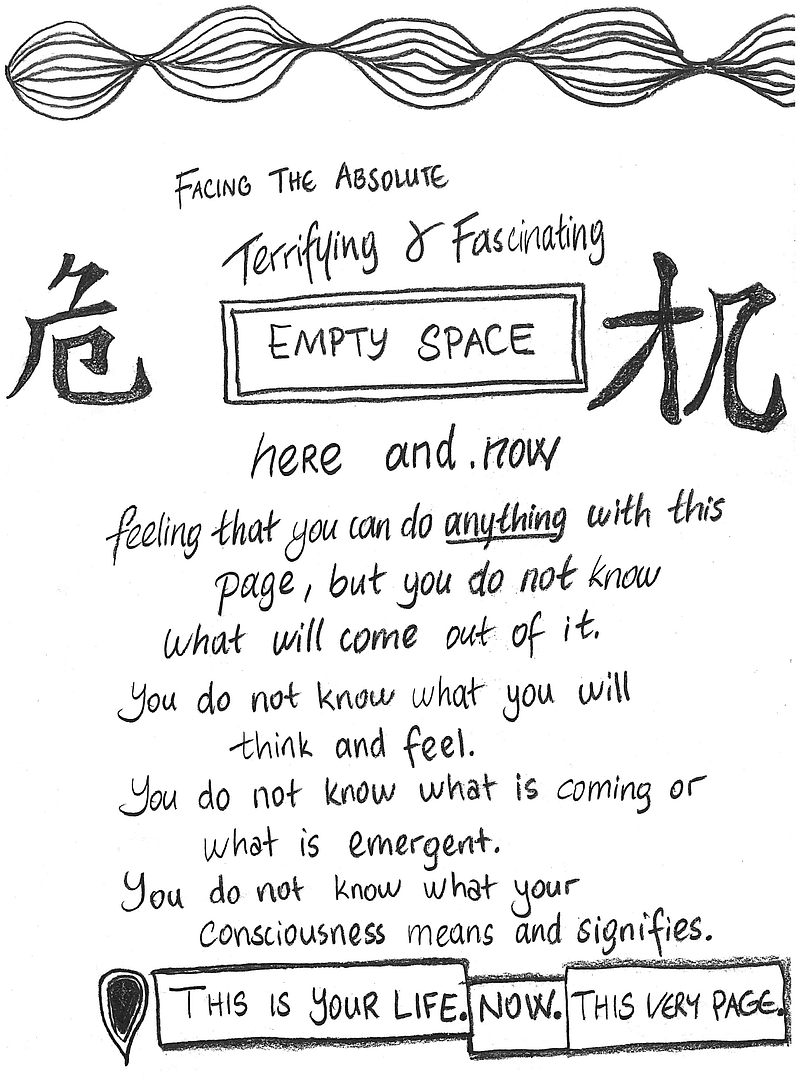 FACING THE ABSOLUTE
Terrifying & Fascinating
危 EMPTY SPACE 机
here and .now
feeling that you can do anything with this
page, but you do not know
what will come out of it.
You do not know what you will
think and feel.
You do not know what is coming or
what is emergent.
You do not know what your
consciousness means and signifies.
THIS IS YOUR LIFE. NOW. THIS VERY PAGE.